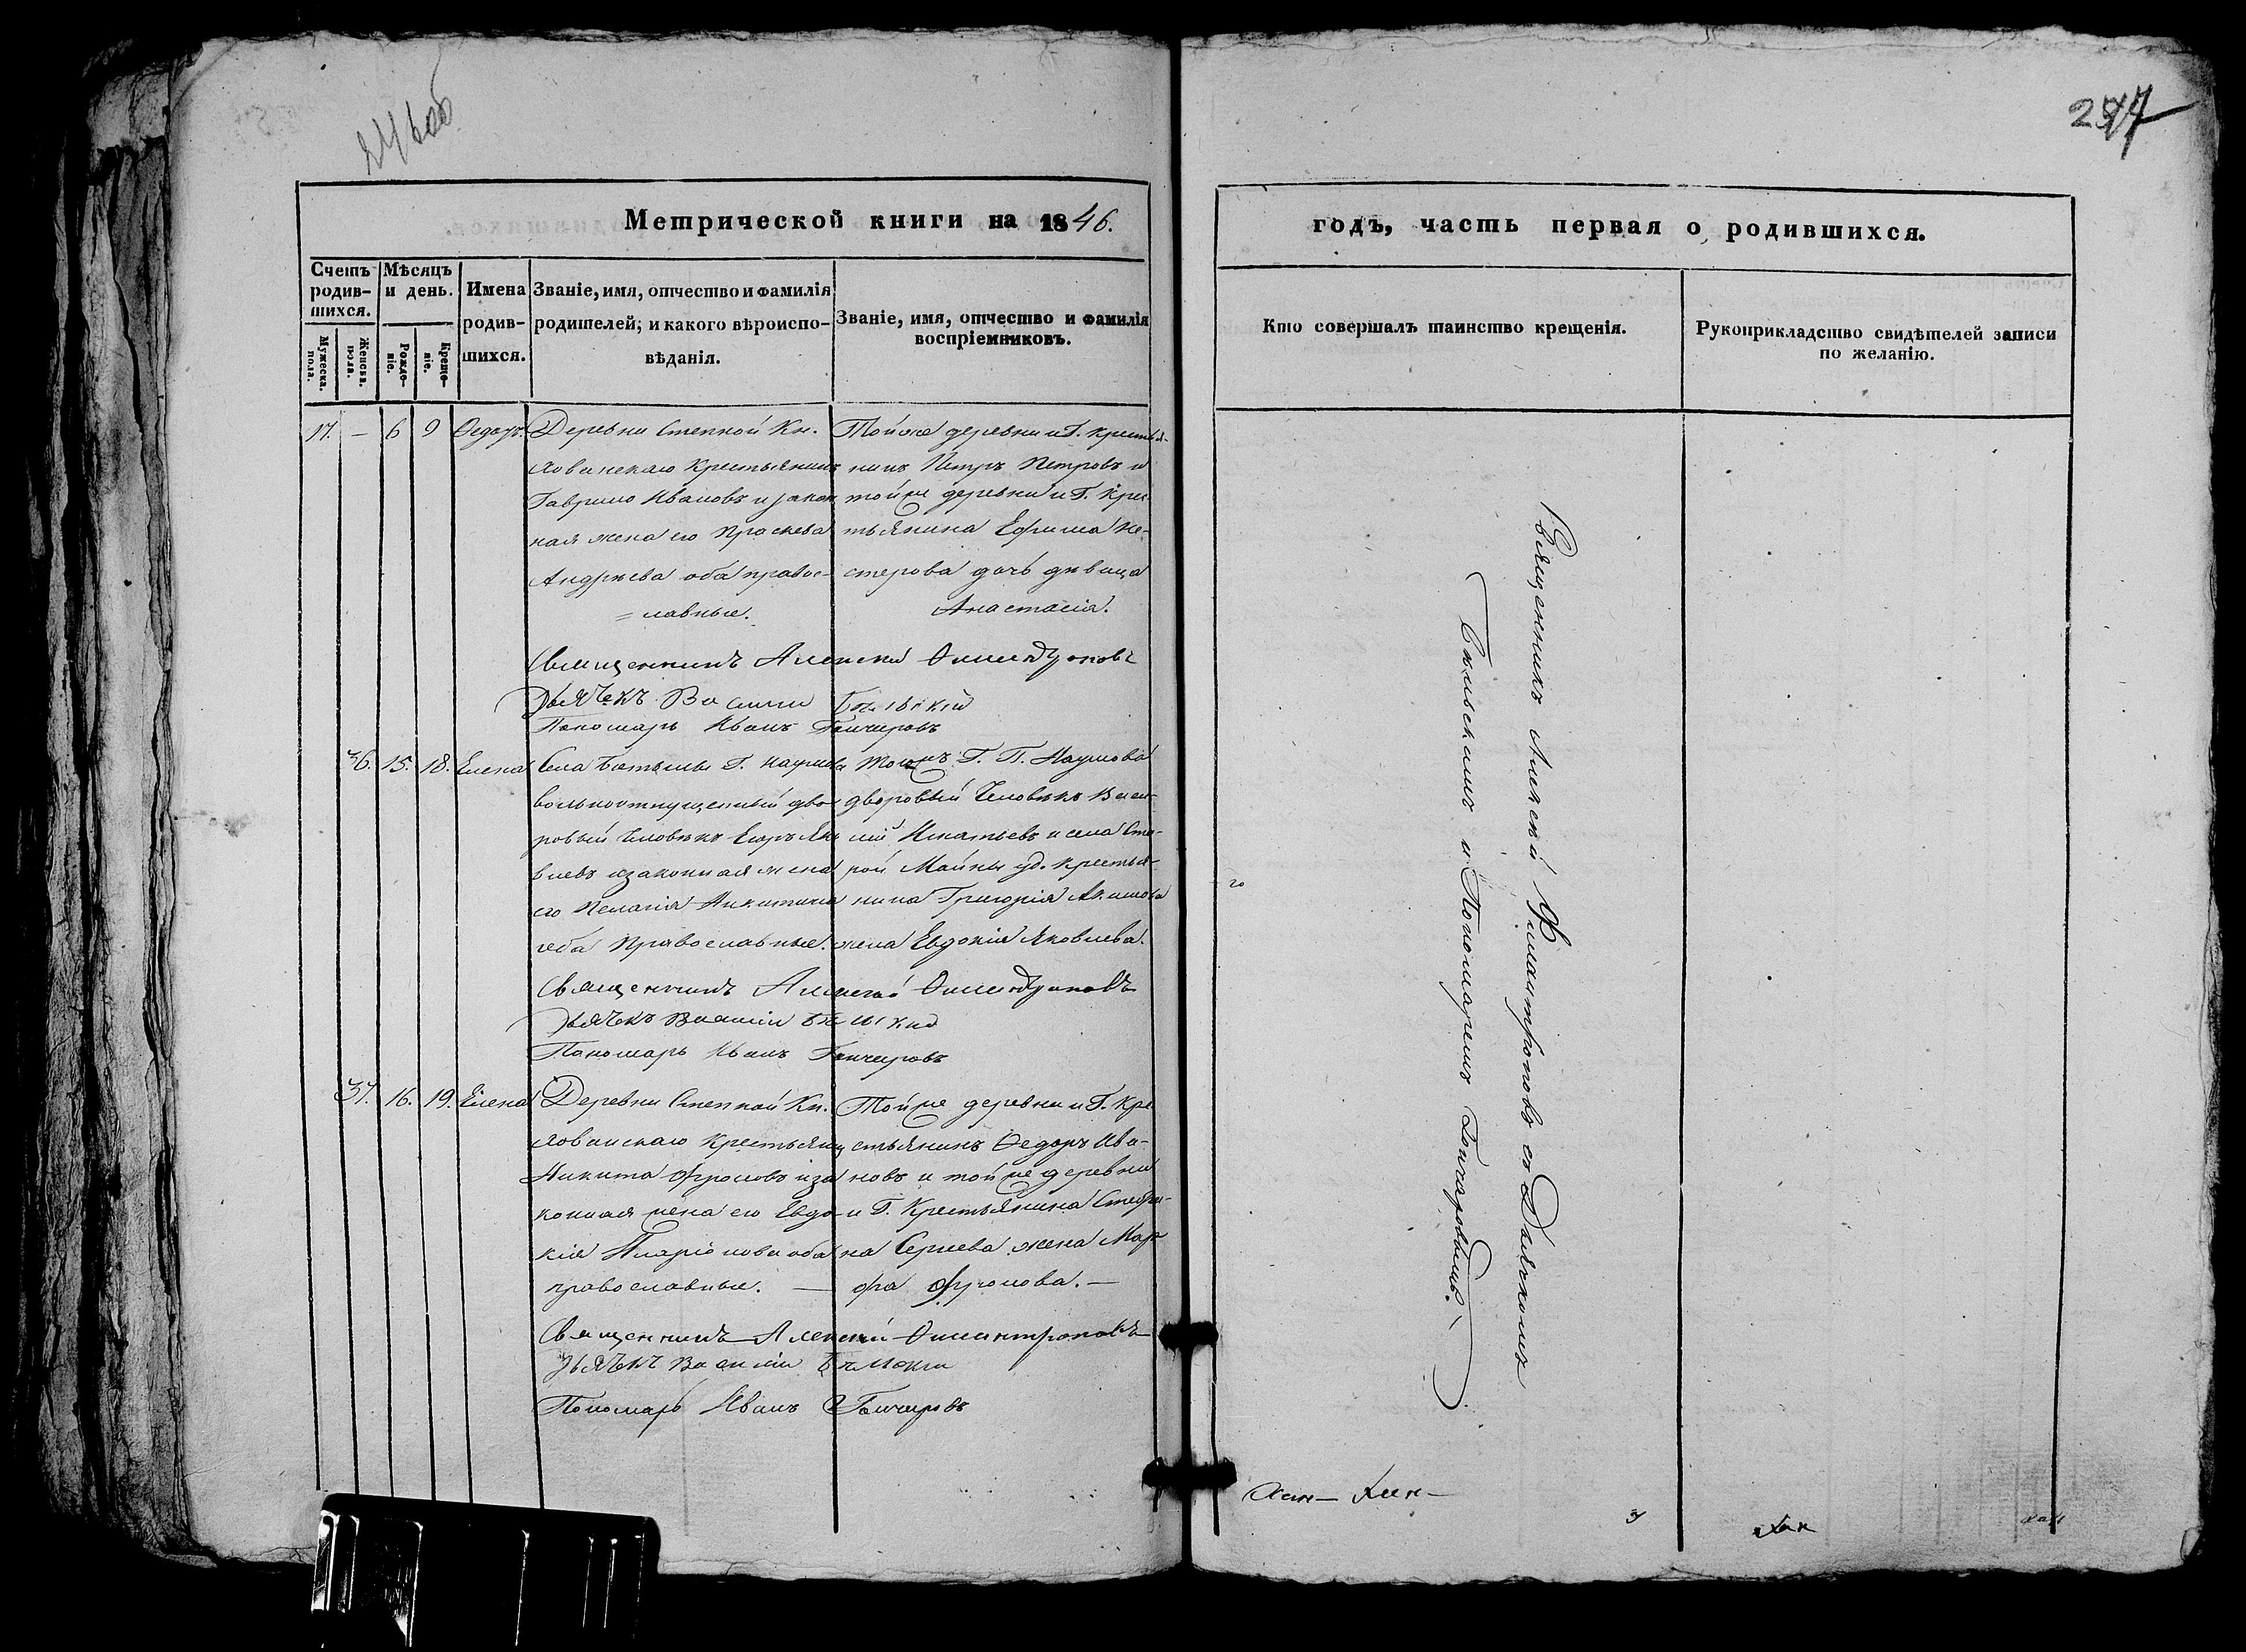 246об
Метрической книги на 1846.
Счетъ родившихся.
Мужеска. пола.
Женска. пола.
Мѣсяцъ и день.
Рожденіе.
Крещеніе.
Имена родившихся.
Званіе, имя, отчество и фамилія родителей, и какого вѣроисповѣданія.
Званіе, имя, отчество и фамилія воспріемниковъ.
17. — 6 9 Ѳедоръ.
Деревни Степной Кн.
крестьянинъ
Гаврило Ивановъ и закон
ная жена его Прасковья
Андреева оба правос-
=лавные.
Тойже деревни и Г. крестья-
нинъ Петръ Петровъ и
тойже деревни и Г. крес
тьянина Ефима Не-
стерова дочь дѣвица
Анастасія.
Священникъ Алексей Филантроповъ
Дьячекъ Василий Бѣльскій
Пономарь Иванъ Гончаровъ
36. 15. 18. Елена
Села Г. Наумова
вольноотпущенный дво-
ровый человѣкъ Егоръ Яко
влевъ и законная жена
его Пелагія Никитина
оба православные.
Тогожъ Г. П. Наумова
дворовый человѣкъ Васи-
лій Игнатьевъ и села Ста-
рой Майны уд. крестья-
нина Григорія Акимова
жена Евдокія Яковлева.
Священникъ Алексей Филантроповъ
Дьячекъ Василий Бѣльский
Пономарь Иванъ Гончаровъ
37. 16. 19. Елена
Деревни Степной Кн.
крестьянинъ
Никита Фроловъ и за
конная жена его Евдо-
кія Иларіонова оба
православные. —
Тойже деревни и Г. кре
стьянинъ Ѳедоръ Ива-
новъ и тойже деревни
и Г. крестьянина Степа-
на Сергеева жена Мар
фа Фролова. —
Священникъ Алексей Филантроповъ
Дьячекъ Василий Бѣльский
Пономарь Иванъ Гончаровъ
247
годъ, часть первая о родившихся.
Кто совершалъ таинство крещенія.
Рукоприкладство свидѣтелей записи по желанію.
Священникъ Алексѣй Филантроповъ съ Дьячкомъ
Бѣльскимъ и Пономаремъ Гончаровымъ.